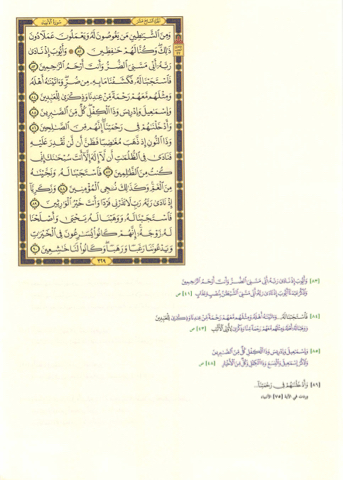 سورة الأنبياء
الجزء السابع عشر
وَمِنَ ٱلشَّيَٰطِينِ مَن يَغُوصُونَ لَهُۥ وَيَعْمَلُونَ عَمَلًا دُونَ
ذَٰلِكَ وَكُنَّا لَهُمْ حَٰفِظِينَ ۝٨٢ وَأَيُّوبَ إِذْ نَادَىٰ
رَبَّهُۥٓ أَنِّى مَسَّنِىَ ٱلضُّرُّ وَأَنتَ أَرْحَمُ ٱلرَّٰحِمِينَ ۝٨٣
فَٱسْتَجَبْنَا لَهُۥ فَكَشَفْنَا مَا بِهِۦ مِن ضُرٍّ وَءَاتَيْنَٰهُ أَهْلَهُۥ
وَمِثْلَهُم مَّعَهُمْ رَحْمَةً مِّنْ عِندِنَا وَذِكْرَىٰ لِلْعَٰبِدِينَ ۝٨٤
وَإِسْمَٰعِيلَ وَإِدْرِيسَ وَذَا ٱلْكِفْلِ كُلٌّ مِّنَ ٱلصَّٰبِرِينَ ۝٨٥
وَأَدْخَلْنَٰهُمْ فِى رَحْمَتِنَآ إِنَّهُم مِّنَ ٱلصَّٰلِحِينَ ۝٨٦
وَذَا ٱلنُّونِ إِذ ذَّهَبَ مُغَٰضِبًا فَظَنَّ أَن لَّن نَّقْدِرَ عَلَيْهِ
فَنَادَىٰ فِى ٱلظُّلُمَٰتِ أَن لَّآ إِلَٰهَ إِلَّآ أَنتَ سُبْحَٰنَكَ إِنِّى
كُنتُ مِنَ ٱلظَّٰلِمِينَ ۝٨٧ فَٱسْتَجَبْنَا لَهُۥ وَنَجَّيْنَٰهُ
مِنَ ٱلْغَمِّ وَكَذَٰلِكَ نُۨجِى ٱلْمُؤْمِنِينَ ۝٨٨ وَزَكَرِيَّآ
إِذْ نَادَىٰ رَبَّهُۥ رَبِّ لَا تَذَرْنِى فَرْدًا وَأَنتَ خَيْرُ ٱلْوَٰرِثِينَ ۝٨٩
فَٱسْتَجَبْنَا لَهُۥ وَوَهَبْنَا لَهُۥ يَحْيَىٰ وَأَصْلَحْنَا
لَهُۥ زَوْجَهُۥٓ إِنَّهُمْ كَانُوا۟ يُسَٰرِعُونَ فِى ٱلْخَيْرَٰتِ
وَيَدْعُونَنَا رَغَبًا وَرَهَبًا وَكَانُوا۟ لَنَا خَٰشِعِينَ ۝٩٠
٣٢٩
[٨٣] وَأَيُّوبَ إِذْ نَادَىٰ رَبَّهُۥٓ أَنِّى مَسَّنِىَ ٱلضُّرُّ وَأَنتَ أَرْحَمُ ٱلرَّٰحِمِينَ
وَٱذْكُرْ عَبْدَنَآ أَيُّوبَ إِذْ نَادَىٰ رَبَّهُۥٓ أَنِّى مَسَّنِىَ ٱلشَّيْطَٰنُ بِنُصْبٍ وَعَذَابٍ [٤١] ص
[٨٤] فَٱسْتَجَبْنَا لَهُۥ... وَءَاتَيْنَٰهُ أَهْلَهُۥ وَمِثْلَهُم مَّعَهُمْ رَحْمَةً مِّنْ عِندِنَا وَذِكْرَىٰ لِلْعَٰبِدِينَ
وَوَهَبْنَا لَهُۥٓ أَهْلَهُۥ وَمِثْلَهُم مَّعَهُمْ رَحْمَةً مِّنَّا وَذِكْرَىٰ لِأُو۟لِى ٱلْأَلْبَٰبِ [٤٣] ص
[٨٥] وَإِسْمَٰعِيلَ وَإِدْرِيسَ وَذَا ٱلْكِفْلِ كُلٌّ مِّنَ ٱلصَّٰبِرِينَ
وَٱذْكُرْ إِسْمَٰعِيلَ وَٱلْيَسَعَ وَذَا ٱلْكِفْلِ وَكُلٌّ مِّنَ ٱلْأَخْيَارِ [٤٨] ص
[٨٦] وَأَدْخَلْنَٰهُمْ فِى رَحْمَتِنَآ...
وردت في الآية [٧٥] الأنبياء